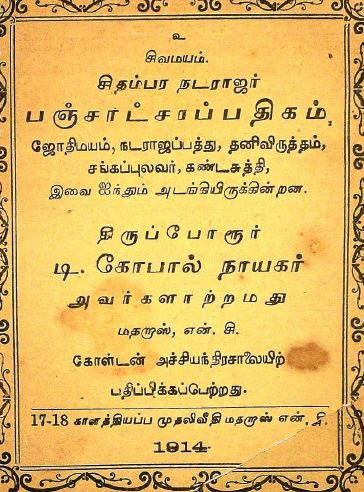 உ
சிவமயம்.
சிதம்பர நடராஜர்
பஞ்சாட்சரப்பதிகம்,
ஜோதிமயம், நடராஜப்பத்து, தனிவிருத்தம்,
சங்கப்புலவர், கண்டசுத்தி,
இவை ஐந்தும் அடங்கியிருக்கின்றன.
திருப்போரூர்
டி. கோபால் நாயகர்
அவர்களாற்றமது
மதறாஸ், என். சி.
கோள்டன் அச்சியந்திரசாலையிற்
பதிப்பிக்கப்பெற்றது.
17-18 காளத்தியப்ப முதலிவீதி மதறாஸ் என். சி.
1914